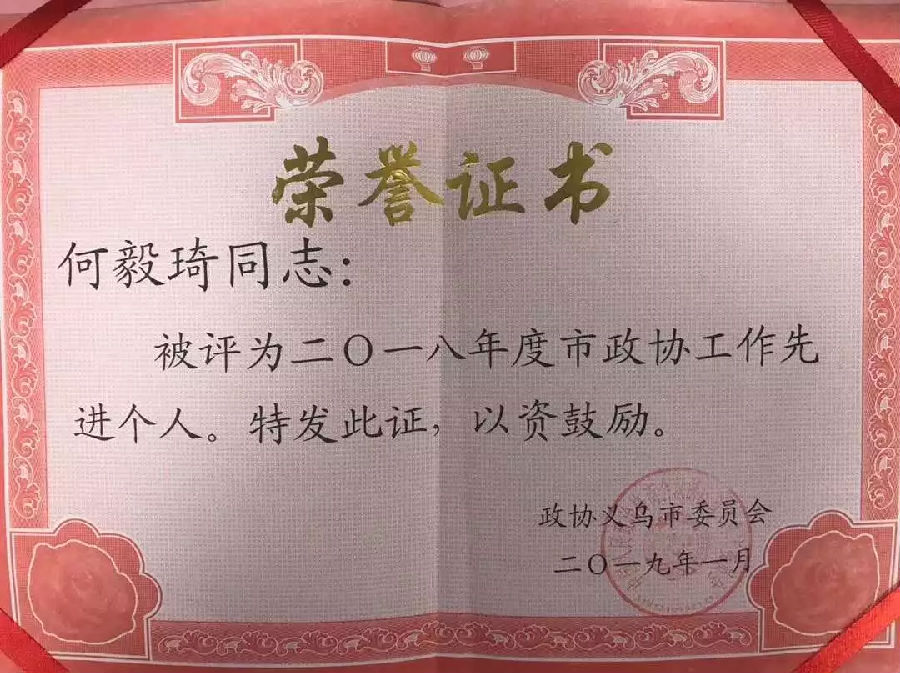 荣誉证书
何毅琦同志：
被评为二〇一八年度市政协工作先
进个人。特发此证，以资鼓励。
政协义乌市委员会
二〇一九年一月